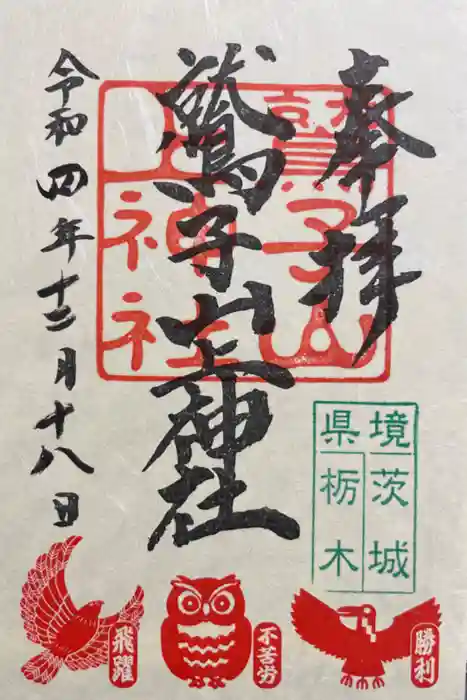 奉拝
鷲子山上神社
令和四年十二月十八日
鷲子山
上神社
県境
茨城
栃木
飛躍
不苦労
勝利